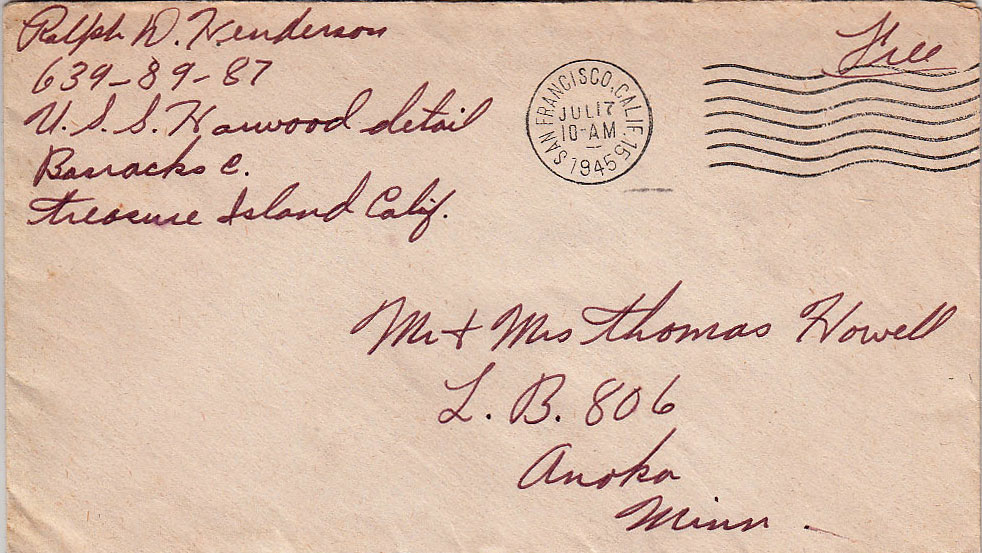 Ralph D. Henderson
639-89-87
U.S.S. Harwood detail
Barracks C.
Treasure Island Calif.
Free
SAN FRANCISCO, CALIF. 15
JUL 17
10-AM
1945
Mr + Mrs Thomas Howell
L. B. 806
Anoka
Minn.